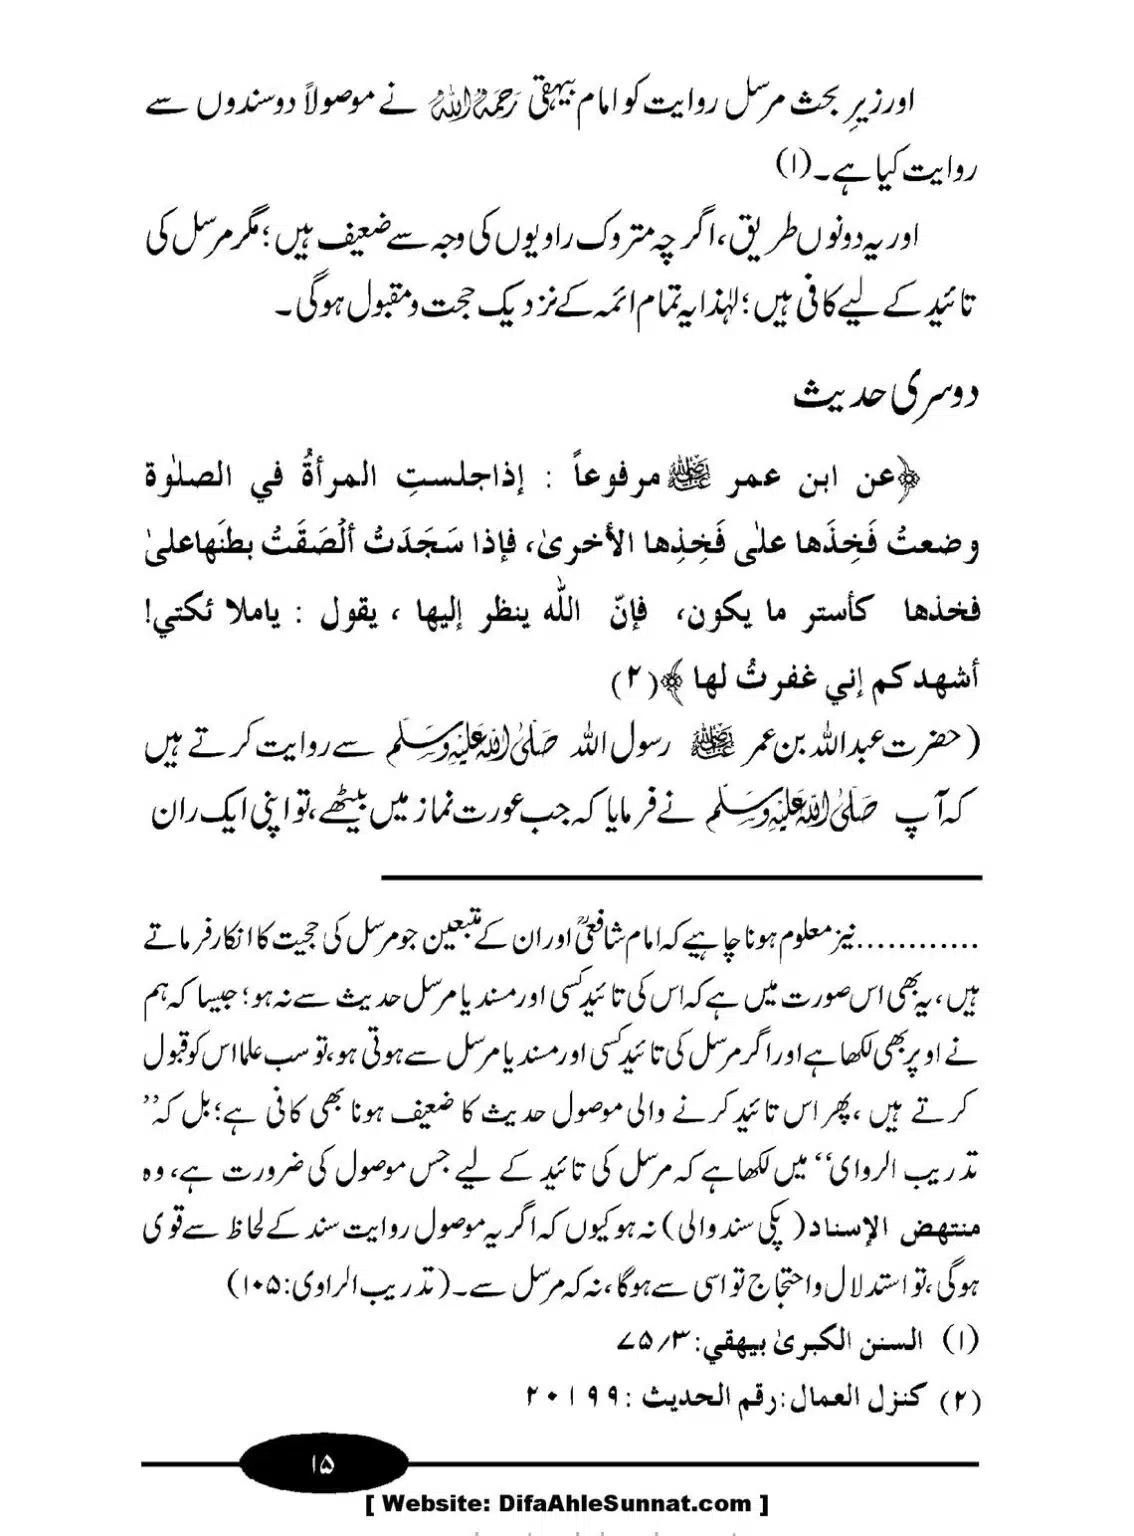 اور زیرِ بحث مرسل روایت کو امام بیہقی رحمہ اللہ نے موصولاً دو سندوں سے
روایت کیا ہے۔(۱)
اور یہ دونوں طریق، اگر چہ متروک راویوں کی وجہ سے ضعیف ہیں؛ مگر مرسل کی
تائید کے لیے کافی ہیں؛ لہٰذا یہ تمام ائمہ کے نزدیک حجت و مقبول ہوگی۔
دوسری حدیث
﴿عن ابن عمر رضی اللہ عنہ مرفوعاً : إذا جلستِ المرأةُ في الصلوٰة
وضعتُ فَخِذَها علیٰ فَخِذِها الأخریٰ، فإذا سَجَدَتُ ألْصَقَتُ بطنَها علیٰ
فخذها كأستر ما يكون، فإنّ اللّٰه ينظر إليها ، يقول : ياملا ئكتي!
أشهدكم إني غفرتُ لها ﴾(۲)
(حضرت عبداللہ بن عمر رضی اللہ عنہ رسول اللہ صلی اللہ علیہ وسلم سے روایت کرتے ہیں
کہ آپ صلی اللہ علیہ وسلم نے فرمایا کہ جب عورت نماز میں بیٹھے، تو اپنی ایک ران
............نیز معلوم ہونا چاہیے کہ امام شافعیؒ اور ان کے متبعین جو مرسل کی حجیت کا انکار فرماتے
ہیں، یہ بھی اس صورت میں ہے کہ اس کی تائید کسی اور مسند یا مرسل حدیث سے نہ ہو؛ جیسا کہ ہم
نے اوپر بھی لکھا ہے اور اگر مرسل کی تائید کسی اور مسند یا مرسل سے ہوتی ہو، تو سب علما اس کو قبول
کرتے ہیں ، پھر اس تائید کرنے والی موصول حدیث کا ضعیف ہونا بھی کافی ہے؛ بل کہ ’’
تدریب الروای‘‘ میں لکھا ہے کہ مرسل کی تائید کے لیے جس موصول کی ضرورت ہے، وہ
منتهض الإسناد (پکی سند والی) نہ ہو کیوں کہ اگر یہ موصول روایت سند کے لحاظ سے قوی
ہوگی، تو استدلال و احتجاج تو اسی سے ہوگا، نہ کہ مرسل سے۔ (تدریب الراوی:۱۰۵)
(۱) السنن الکبریٰ بیهقي: ۳/۷۵
(۲) کنزل العمال: رقم الحدیث : ۲۰۱۹۹
۱۵
[ Website: DifaAhleSunnat.com ]